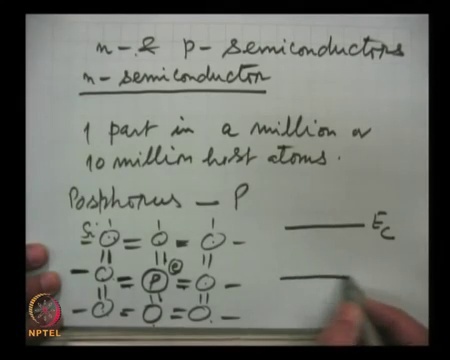 n- & p- semiconductors
n- semiconductor
1 part in a million or
10 million host atoms.
Posphorus — P
Si
e
P
E_C
NPTEL